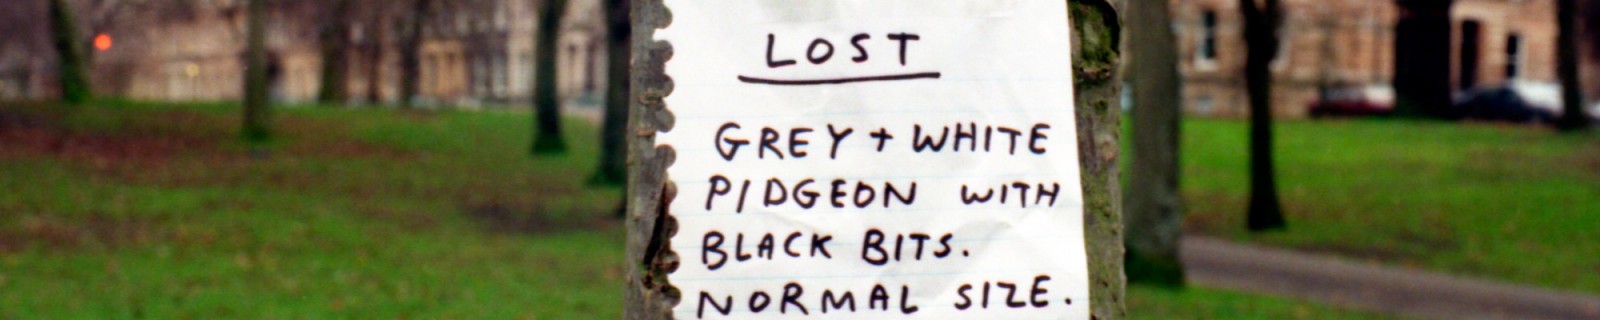 LOST
GREY + WHITE
PIDGEON WITH
BLACK BITS.
NORMAL SIZE.